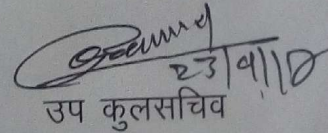 23/9/18
उप कुलसचिव